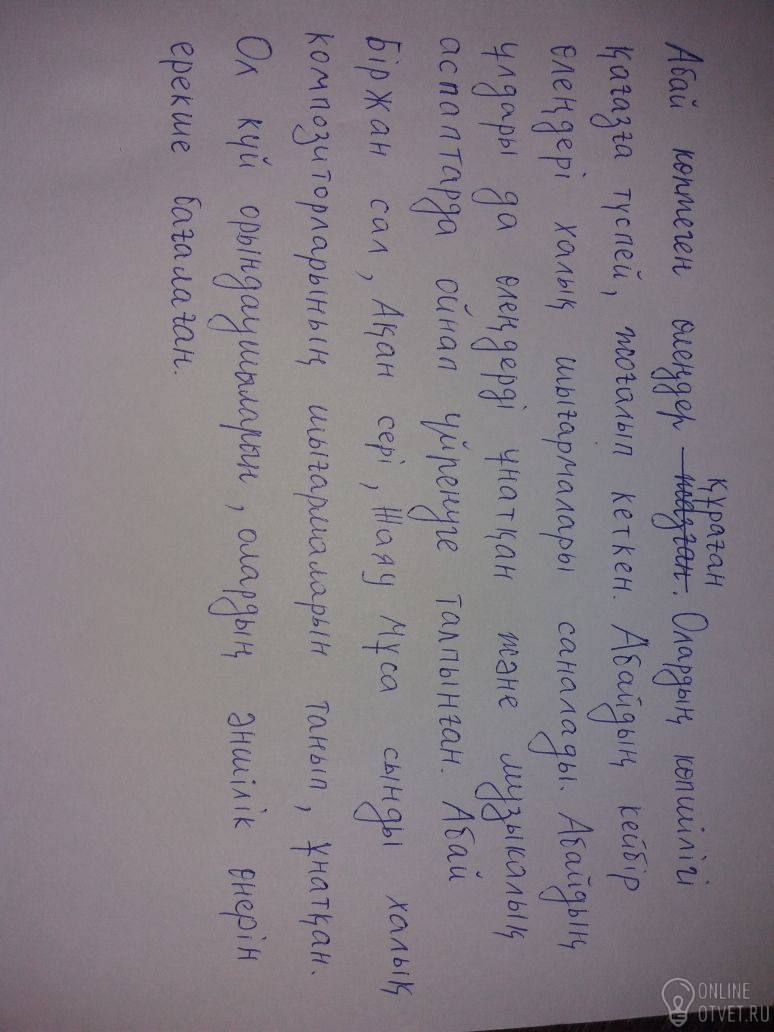 Абай көптеген өлеңдер жазған. Олардың көпшілігі
құраған
қағазға түспей, жоғалып кеткен. Абайдың кейбір
өлеңдері халық шығармалары саналады. Абайдың
ұлдары да өлеңдерді ұнатқан және музыкалық
аспаптарда ойнап үйренуге талпынған. Абай
Біржан сал, Ақан сері, Жаяу Мұса сынды халық
композиторларының шығармаларын танып, ұнатқан.
Ол күй орындаушыларын, олардың әншілік өнерін
ерекше бағалаған.
ONLINE
OTVET.RU